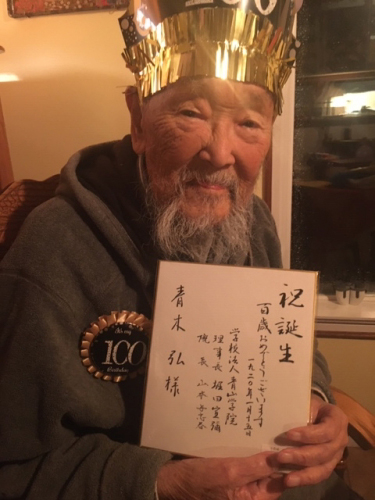 祝誕生
百歳おめでとうございます
一九二〇年一月十五日
学校法人青山学院
理事長 堀田宣彌
院長 山本与志春
青木弘様
100